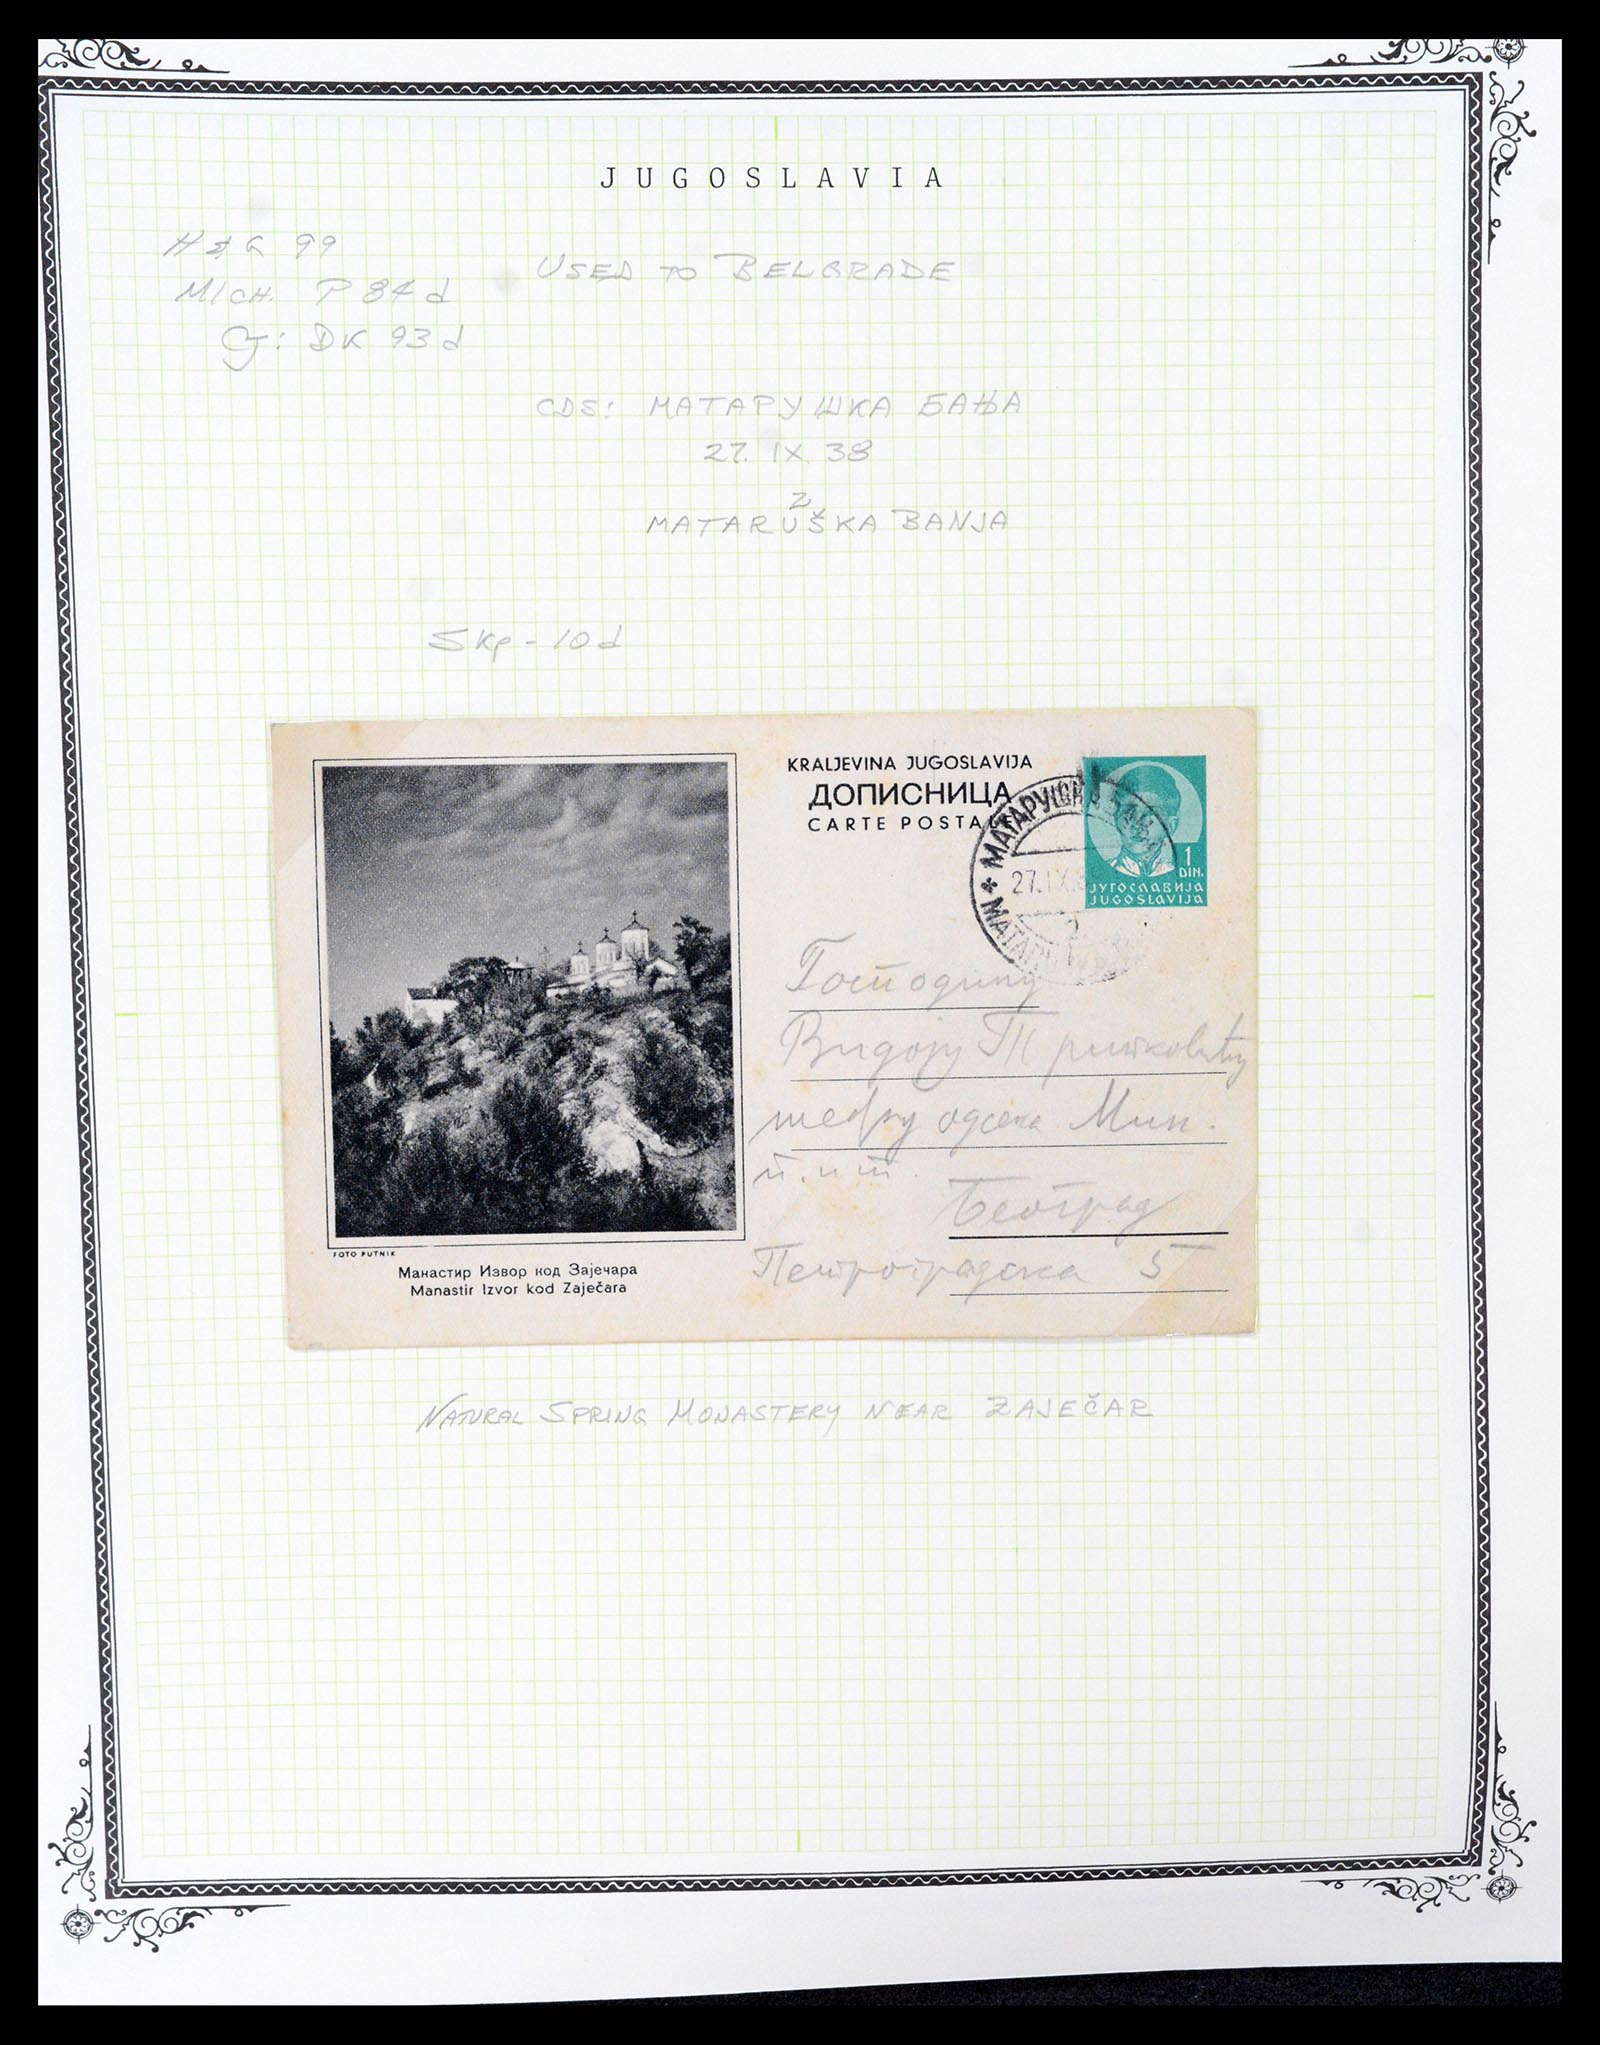 JUGOSLAVIA
H & G 99
MICH. P 84 d
USED TO BELGRADE
CJ: DK 93 d
CDS: МАТАРУШКА БАЊА
27. IX. 38
2
MATARUŠKA BANJA
SKp - 10 d
KRALJEVINA JUGOSLAVIJA
ДОПИСНИЦА
CARTE POSTALE
МАТАРУШКА БАЊА
27.IX.3
2
1
DIN.
ЈУГОСЛАВИЈА
JUGOSLAVIJA
Господину
Видоју
шефу одсека Мин.
п. и т.
Београд
Петроградска 5
FOTO PUTNIK
Манастир Извор код Зајечара
Manastir Izvor kod Zaječara
NATURAL SPRING MONASTERY NEAR ZAJEČAR